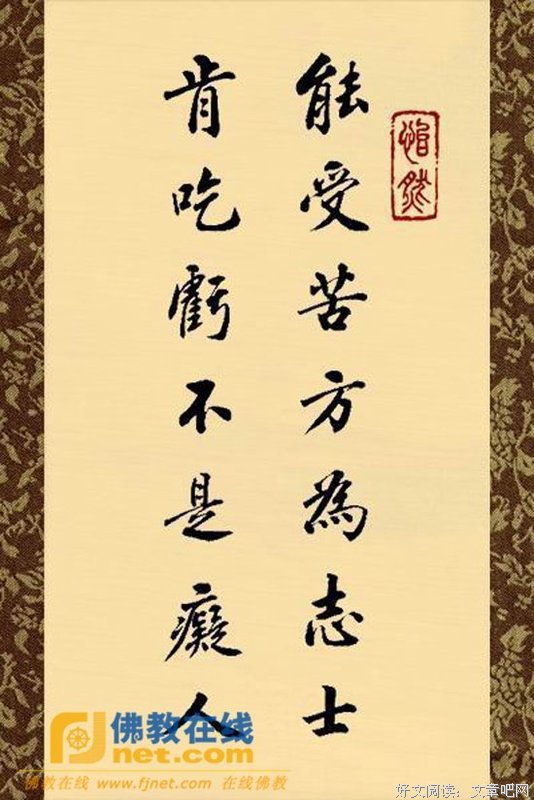 能受苦方為志士
肯吃虧不是癡人
佛教在线
fjnet.com
佛教在线 www.fjnet.com 在线佛教
好文阅读:文章吧网